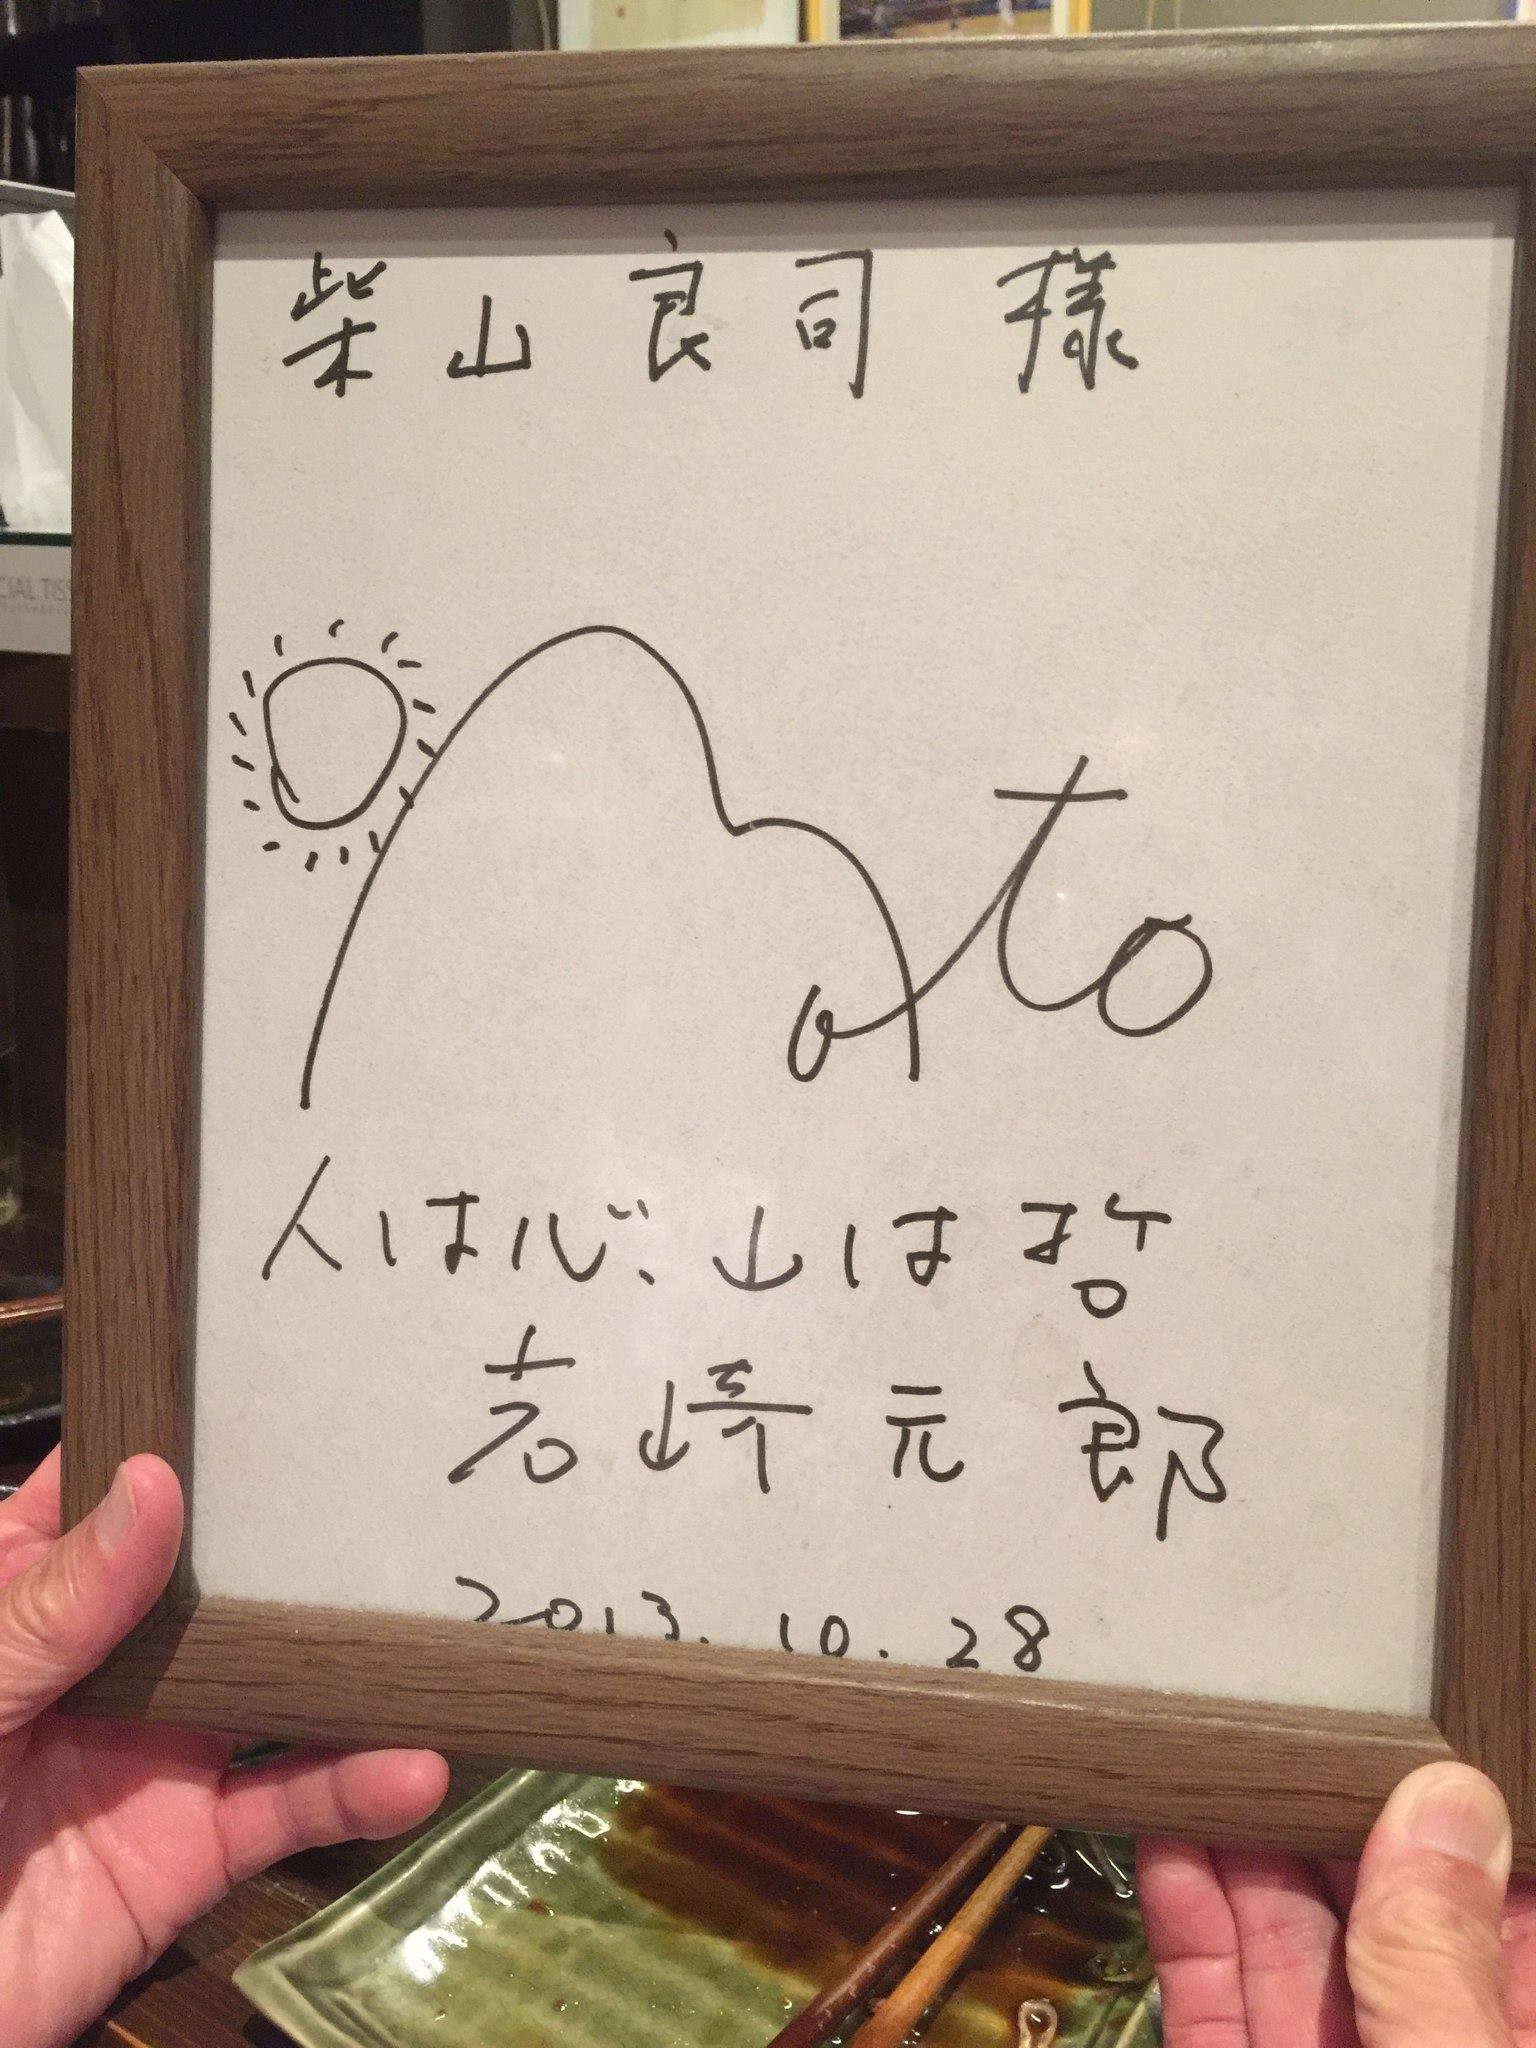 柴山良司様
Moto
人は心、山は哲
岩崎元郎
2013.10.28
CIAL TISS